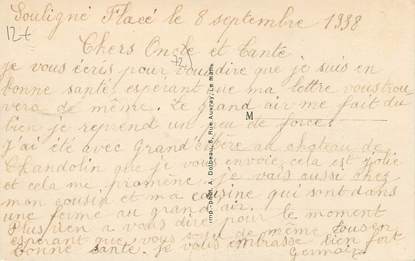 Souligné Flacé le 8 septembre 1938
12 €
Chers Oncle et Tante
je vous écris pour vous dire que je suis en
bonne santé esperant que ma lettre vous trou
vera de même. Le grand air me fait du
bien je reprend un peu de forces
j'ai été avec grand mère au chateau de
Chandolin que je vous envoie cela est jolie
et cela me promène je vais aussi chez
mon cousin et ma cousine qui sont dans
une ferme au grand air.
Plus rien a vous dire pour le moment
esperant que vous soyez de même tous en
bonne santé. je vous embrasse bien fort
Germain
M
imp.-phot. A. Dolbeau, 8, Rue Auvray, Le Mans